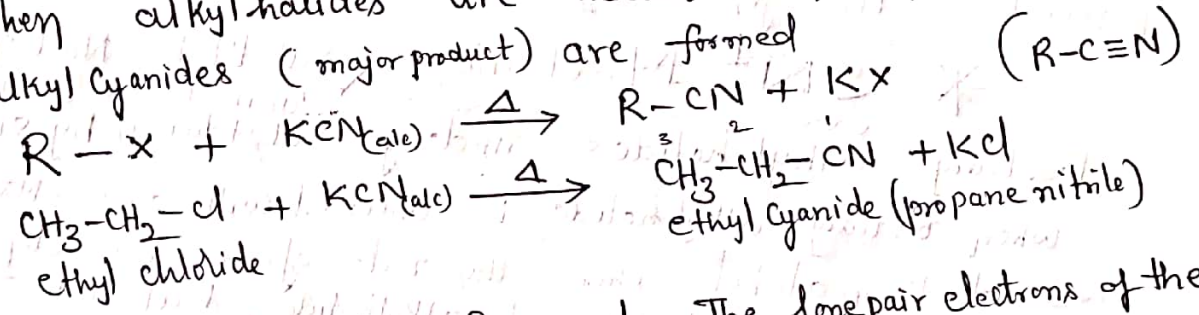 hen alkyl halides
alkyl Cyanides (major product) are formed (R-C≡N)
R-X + KCN(alc) —Δ→ R-CN + KX
CH₃-CH₂-Cl + KCN(alc) —Δ→ ³CH₃-²CH₂-¹CN + KCl
ethyl chloride ethyl Cyanide (propane nitrile)
The lone pair electrons of the